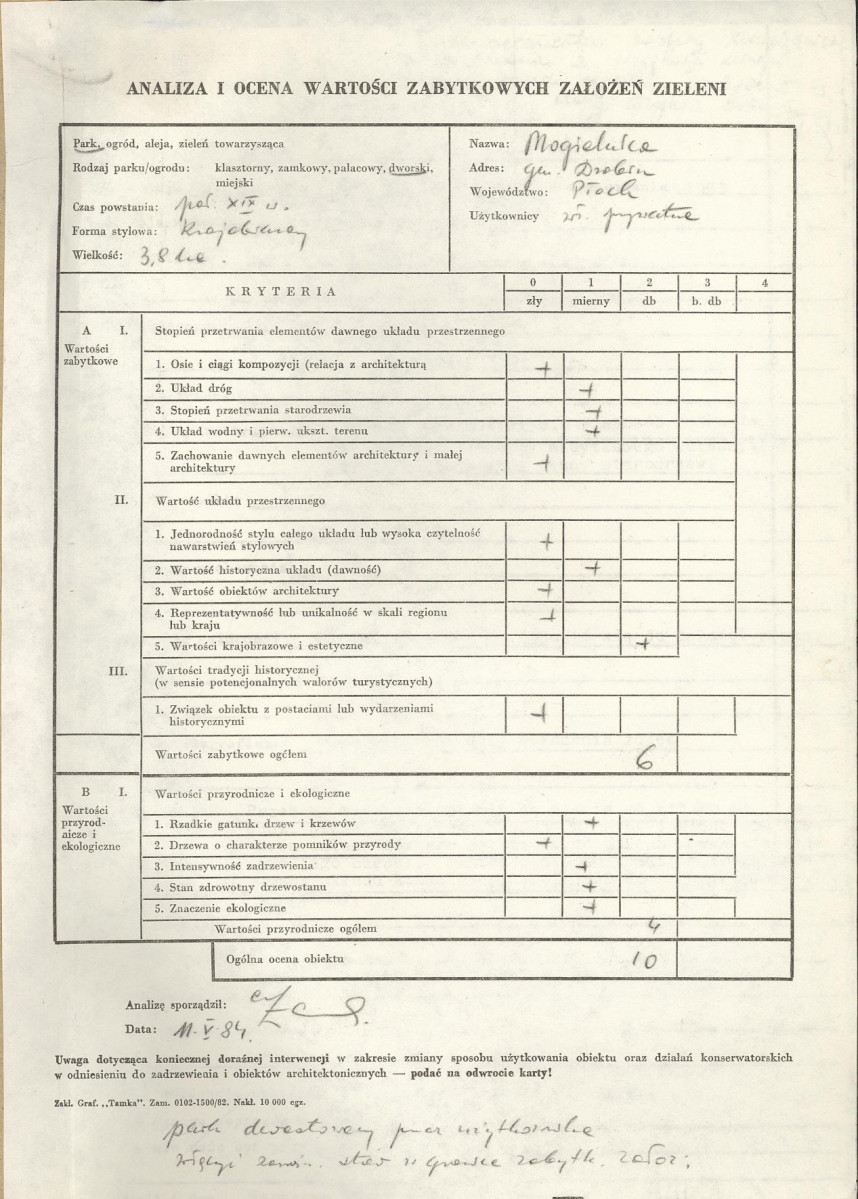 ANALIZA I OCENA WARTOŚCI ZABYTKOWYCH ZAŁOŻEŃ ZIELENI
Park, ogród, aleja, zieleń towarzysząca
Rodzaj parku/ogrodu: klasztorny, zamkowy, pałacowy, dworski,
miejski
Czas powstania: poł. XIX w.
Forma stylowa: Krajobrazowy
Wielkość: 3,8 ha.
Nazwa:
Adres: gm. Drobin
Województwo: Płock
Użytkownicy wł. prywatna
KRYTERIA
0 1 2 3 4
zły mierny db b. db
A I. Stopień przetrwania elementów dawnego układu przestrzennego
Wartości
zabytkowe
1. Osie i ciągi kompozycji (relacja z architekturą +
2. Układ dróg +
3. Stopień przetrwania starodrzewia +
4. Układ wodny i pierw. ukszt. terenu +
5. Zachowanie dawnych elementów architektury i małej
architektury +
II. Wartość układu przestrzennego
1. Jednorodność stylu całego układu lub wysoka czytelność
nawarstwień stylowych +
2. Wartość historyczna układu (dawność) +
3. Wartość obiektów architektury +
4. Reprezentatywność lub unikalność w skali regionu
lub kraju +
5. Wartości krajobrazowe i estetyczne +
III. Wartości tradycji historycznej
(w sensie potencjonalnych walorów turystycznych)
1. Związek obiektu z postaciami lub wydarzeniami
historycznymi +
Wartości zabytkowe ogółem 6
B I. Wartości przyrodnicze i ekologiczne
Wartości
przyrod-
nicze i
ekologiczne
1. Rzadkie gatunki drzew i krzewów +
2. Drzewa o charakterze pomników przyrody +
3. Intensywność zadrzewienia +
4. Stan zdrowotny drzewostanu +
5. Znaczenie ekologiczne +
Wartości przyrodnicze ogółem 4
Ogólna ocena obiektu 10
Analizę sporządził:
Data: 11.V.84.
Uwaga dotycząca koniecznej doraźnej interwencji w zakresie zmiany sposobu użytkowania obiektu oraz działań konserwatorskich
w odniesieniu do zadrzewienia i obiektów architektonicznych — podać na odwrocie karty!
Zakł. Graf. „Tamka”. Zam. 0102-1500/82. Nakł. 10 000 egz.
park dewastowany przez użytkownika
zabytk.